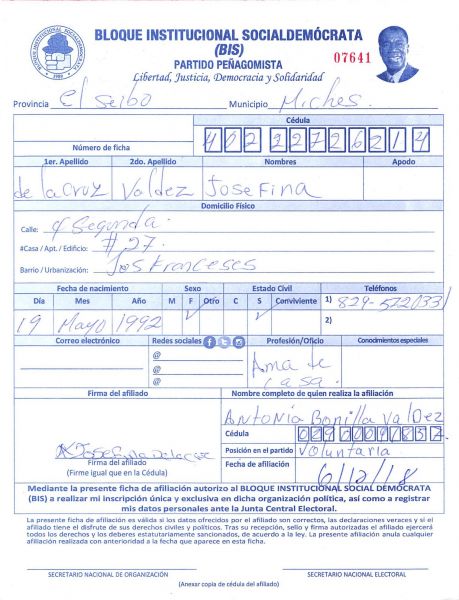 BLOQUE INSTITUCIONAL SOCIALDEMÓCRATA
(BIS)
07641
PARTIDO PEÑAGOMISTA
Libertad, Justicia, Democracia y Solidaridad
BLOQUE INSTITUCIONAL SOCIALDEMOCRATA
Provincia El Seibo Municipio Miches.
Cédula
Número de ficha
1er. Apellido 2do. Apellido Nombres Apodo
de la Cruz Valdez Josefina
Domicilio Físico
Calle: Segunda.
#Casa / Apt. / Edificio: #27.
Barrio / Urbanización: Los Franceses
Fecha de nacimiento Sexo Estado Civil Teléfonos
Día Mes Año M F Otro C S Conviviente 1) 829-5720331
19 Mayo 1992 2)
Correo electrónico Redes sociales Profesión/Oficio Conocimientos especiales
@ Ama de
@ casa.
@
Firma del afiliado Nombre completo de quien realiza la afiliación
Antonia Bonilla Valdez
Cédula
Josefina De la Cruz
Posición en el partido Voluntaria
Firma del afiliado
(Firme igual que en la Cédula)
Fecha de afiliación 6/2/18
Mediante la presente ficha de afiliación autorizo al BLOQUE INSTITUCIONAL SOCIAL DEMÓCRATA
(BIS) a realizar mi inscripción única y exclusiva en dicha organización política, así como a registrar
mis datos personales ante la Junta Central Electoral.
La presente ficha de afiliación es válida si los datos ofrecidos por el afiliado son correctos, las declaraciones veraces y si el
afiliado tiene el disfrute de sus derechos civiles y políticos. Tras su recepción, sello y firma autorizadas el afiliado ejercerá
todos los derechos y los deberes estatutariamente sancionados, de acuerdo a la ley. La presente afiliación anula cualquier
afiliación realizada con anterioridad a la fecha que aparece en esta ficha.
SECRETARIO NACIONAL DE ORGANIZACIÓN SECRETARIO NACIONAL ELECTORAL
(Anexar copia de cédula del afiliado)